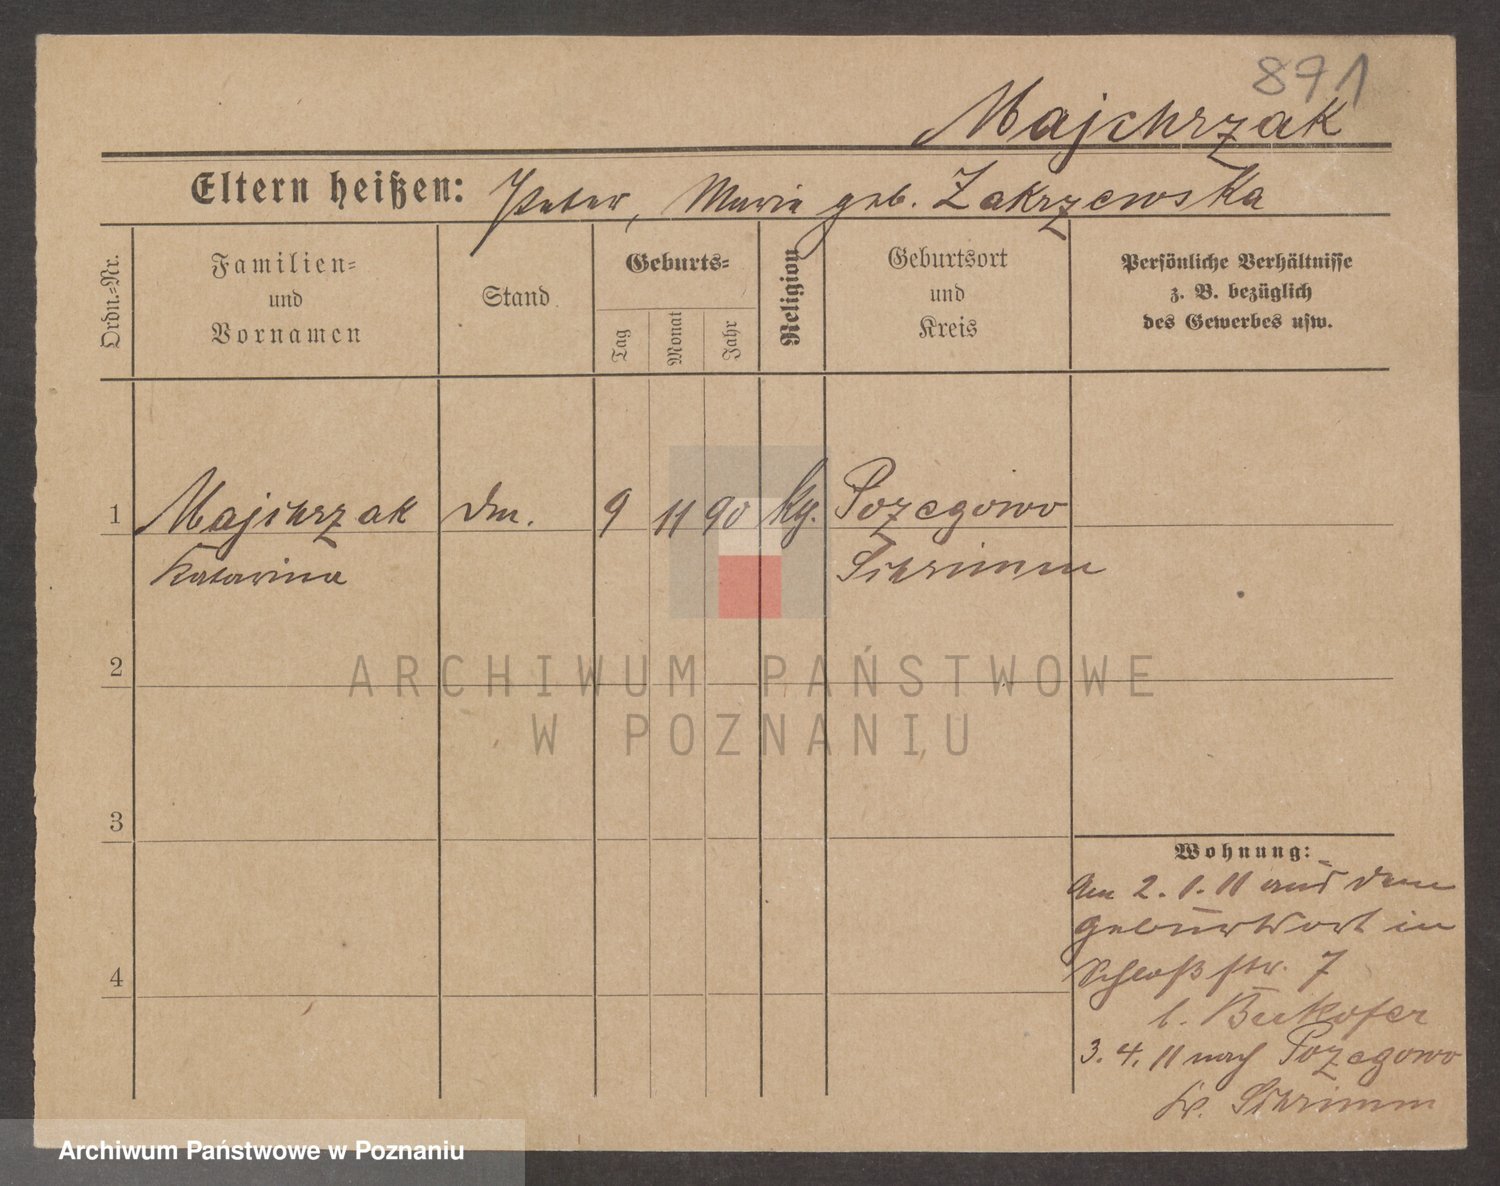 871
Majchrzak
Eltern heißen: Peter, Maria geb. Zakrzewska
Ordn.-Nr.
Familien-
und
Vornamen
Stand
Geburts-
Tag
Monat
Jahr
Religion
Geburtsort
und
Kreis
Persönliche Verhältnisse
z. B. bezüglich
des Gewerbes usw.
1 Majchrzak dm. 9 11 90 kg. Pozegowo
Katarina Schrimm
2
ARCHIWUM PAŃSTWOWE
W POZNANIU
3
Wohnung:
Am 2. 1. 11 aus dem
Geburtsort in
Schloßstr. 7
b. Bukofer
4
3. 4. 11 nach Pozegowo
Kr. Schrimm
Archiwum Państwowe w Poznaniu